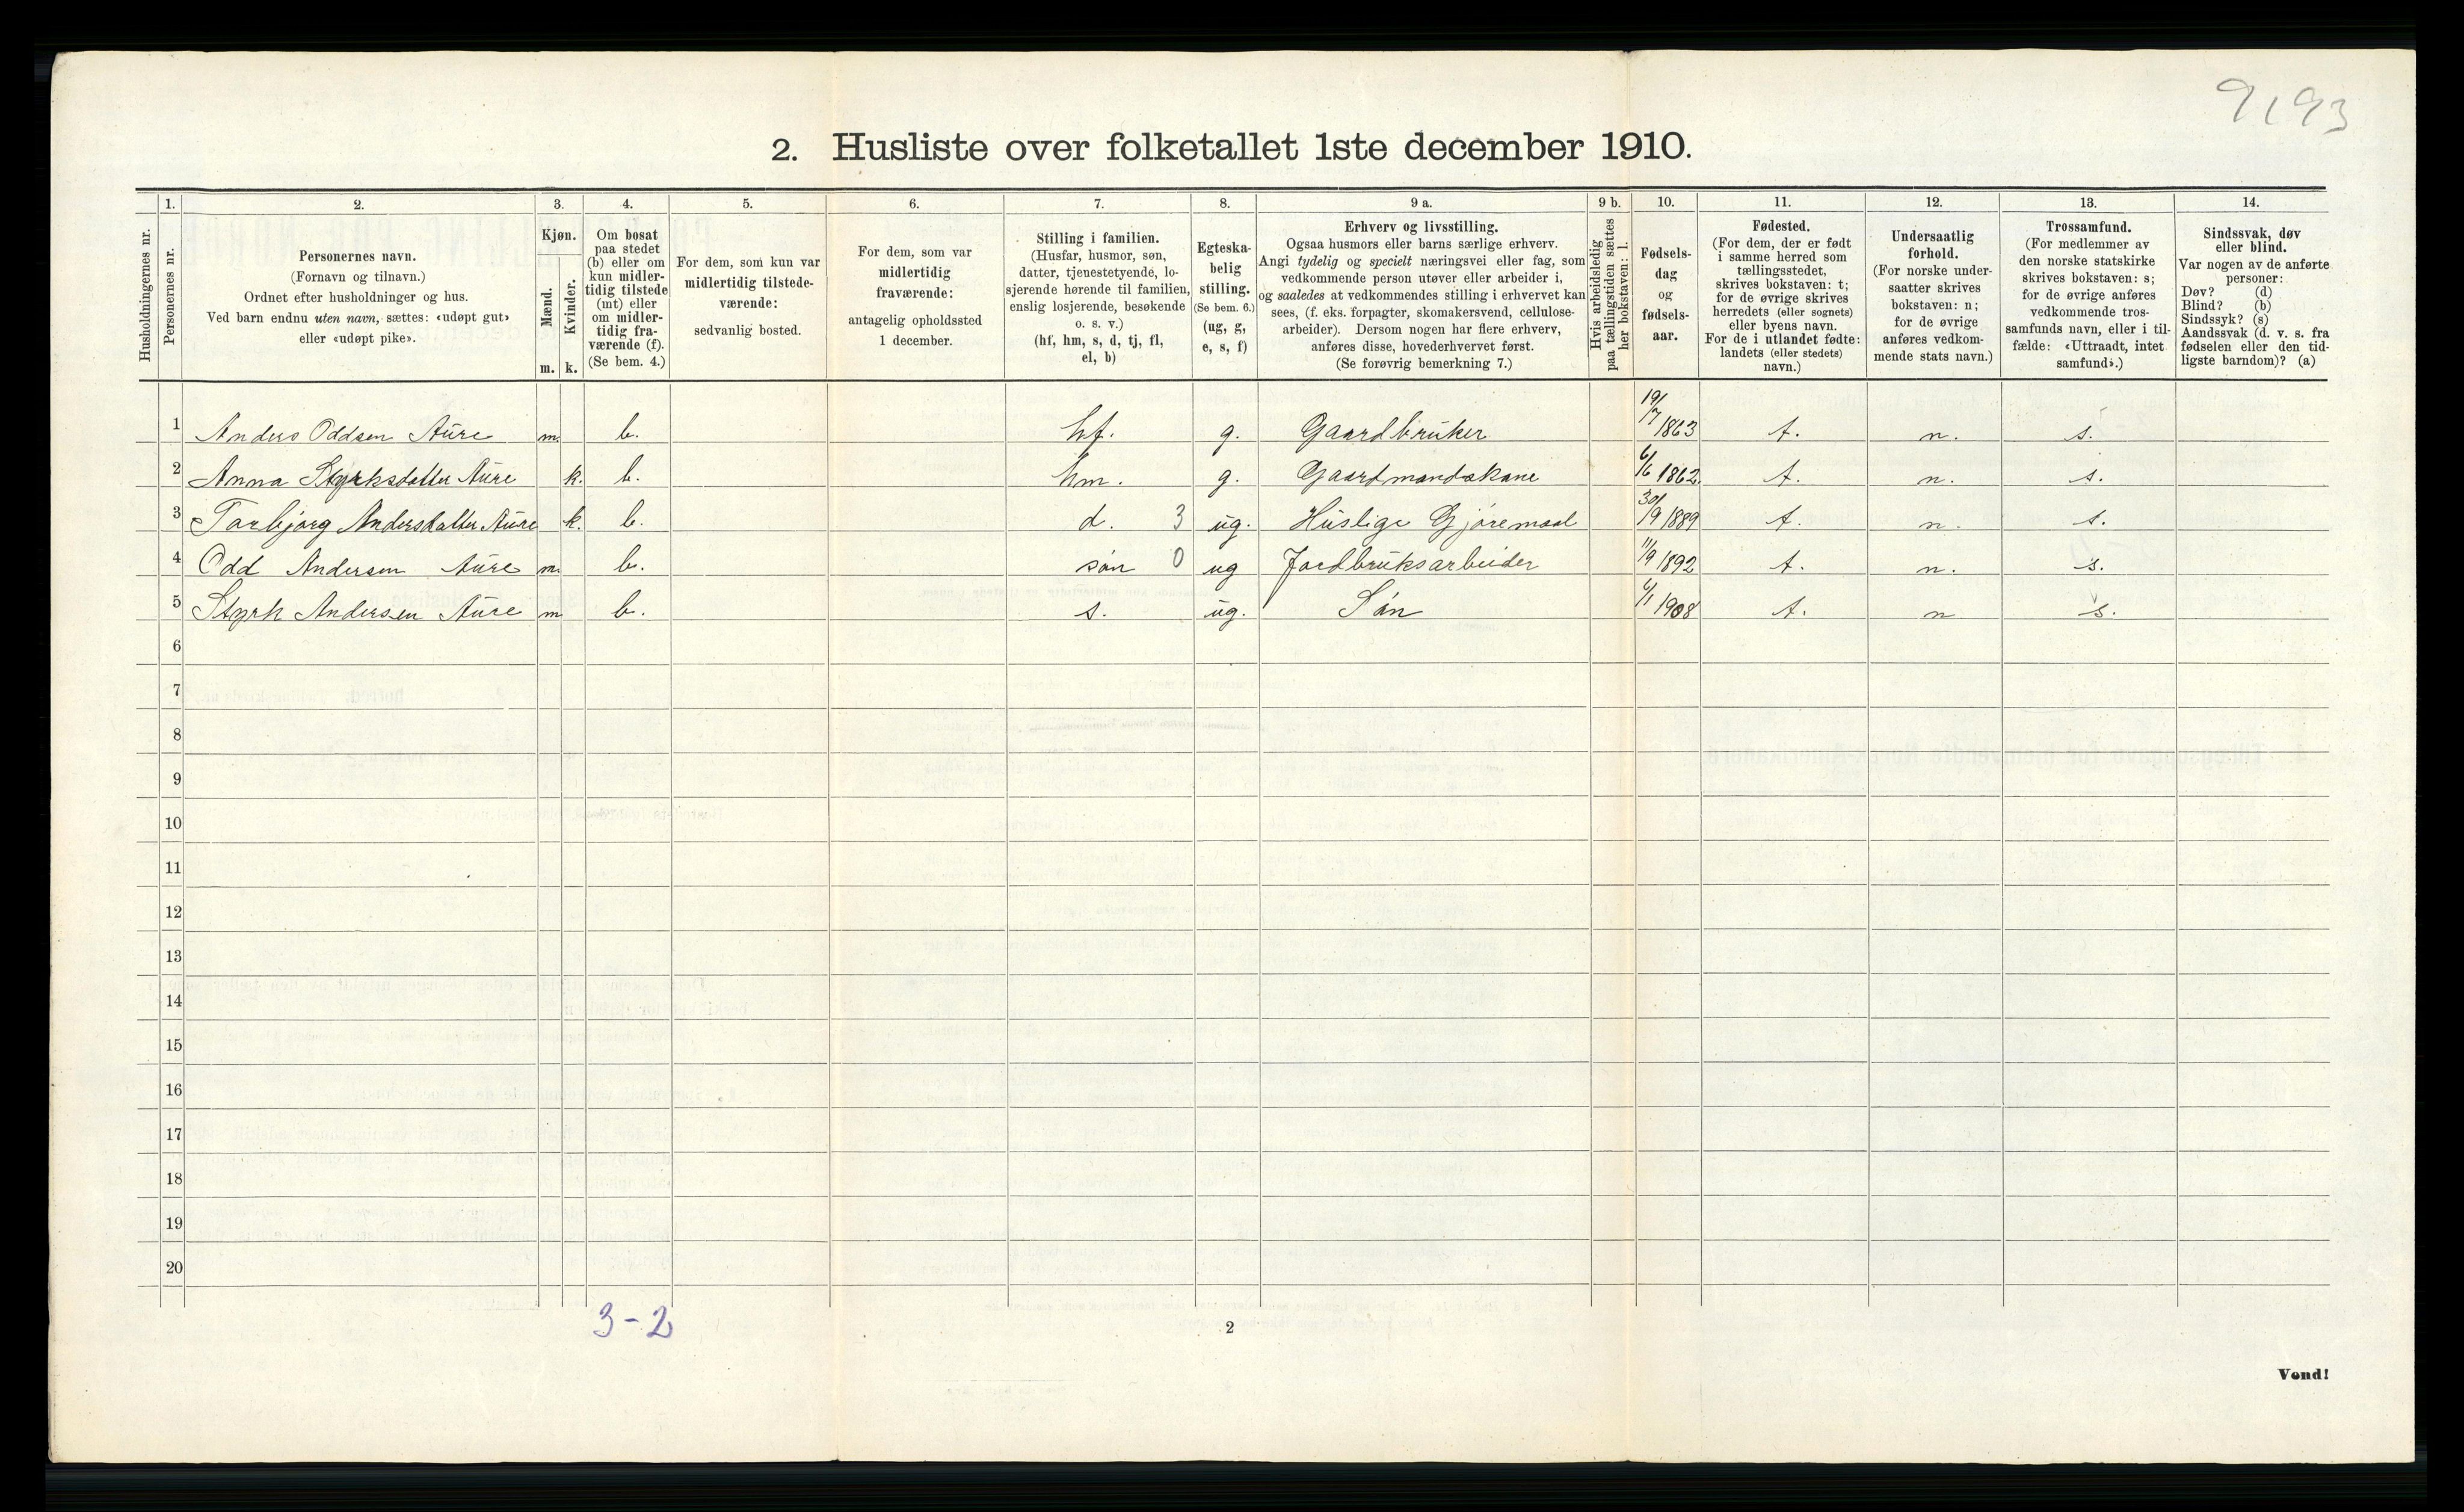 9193
2. Husliste over folketallet 1ste december 1910.
Husholdningernes nr.
1.
Personernes nr.
2.
Personernes navn.
(Fornavn og tilnavn.)
Ordnet efter husholdninger og hus.
Ved barn endnu uten navn, sættes: «udøpt gut»
eller «udøpt pike».
3.
Kjøn.
Mænd.
Kvinder.
m. k.
4.
Om bosat
paa stedet
(b) eller om
kun midler-
tidig tilstede
(mt) eller
om midler-
tidig fra-
værende (f).
(Se bem. 4.)
5.
For dem, som kun var
midlertidig tilstede-
værende:
sedvanlig bosted.
6.
For dem, som var
midlertidig
fraværende:
antagelig opholdssted
1 december.
7.
Stilling i familien.
(Husfar, husmor, søn,
datter, tjenestetyende, lo-
sjerende hørende til familien,
enslig losjerende, besøkende
o. s. v.)
(hf, hm, s, d, tj, fl,
el, b)
8.
Egteska-
belig
stilling.
(Se bem. 6.)
(ug, g,
e, s, f)
9 a.
Erhverv og livsstilling.
Ogsaa husmors eller barns særlige erhverv.
Angi tydelig og specielt næringsvei eller fag, som
vedkommende person utøver eller arbeider i,
og saaledes at vedkommendes stilling i erhvervet kan
sees, (f. eks. forpagter, skomakersvend, cellulose-
arbeider). Dersom nogen har flere erhverv,
anføres disse, hovederhvervet først.
(Se forøvrig bemerkning 7.)
9 b.
Hvis arbeidsledig
paa tællingstiden sættes
her bokstaven: l.
10.
Fødsels-
dag
og
fødsels-
aar.
11.
Fødested.
(For dem, der er født
i samme herred som
tællingsstedet,
skrives bokstaven: t;
for de øvrige skrives
herredets (eller sognets)
eller byens navn.
For de i utlandet fødte:
landets (eller stedets)
navn.)
12.
Undersaatlig
forhold.
(For norske under-
saatter skrives
bokstaven: n;
for de øvrige
anføres vedkom-
mende stats navn.)
13.
Trossamfund.
(For medlemmer av
den norske statskirke
skrives bokstaven: s;
for de øvrige anføres
vedkommende tros-
samfunds navn, eller i til-
fælde: «Uttraadt, intet
samfund».)
14.
Sindssvak, døv
eller blind.
Var nogen av de anførte
personer:
Døv? (d)
Blind? (b)
Sindssyk? (s)
Aandssvak (d. v. s. fra
fødselen eller den tid-
ligste barndom)? (a)
1 Anders Oddsen Aure m. b. hf. g. Gaardbruker 19/7 1863 t. n. s.
2 Anna Styrksdatter Aure k. b. hm. g. Gaardmandskone 6/6 1862. t. n. s.
3 Torbjørg Andersdatter Aure k. b. d. 3 ug. Huslige Gjøremaal 30/9 1889 t. n. s.
4 Odd Andersen Aure m. b. søn 0 ug Jordbruksarbeider 11/9 1892 t. n. s.
5 Styrk Andersen Aure m b. s. ug. Søn 6/1 1908 t. n s.
6
7
8
9
10
11
12
13
14
15
16
17
18
19
20
3-2
2
Vend!